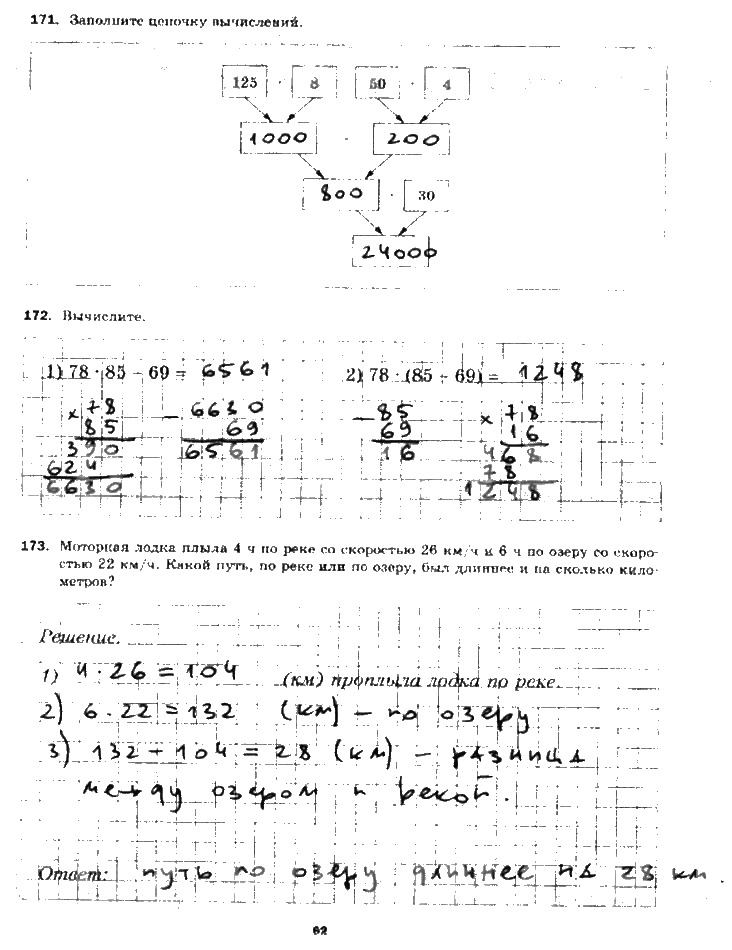 171. Заполните цепочку вычислений.
125 · 8 50 · 4
1000 · 200
800 · 30
24000
172. Вычислите.
1) 78 · 85 − 69 = 6561 2) 78 · (85 − 69) = 1248
× 78 − 6630 − 85 × 78
85 69 69 16
390 6561 16 468
624 78
6630 1248
173. Моторная лодка плыла 4 ч по реке со скоростью 26 км/ч и 6 ч по озеру со скоро-
стью 22 км/ч. Какой путь, по реке или по озеру, был длиннее и на сколько кило-
метров?
Решение.
1) 4 · 26 = 104 (км) проплыла лодка по реке.
2) 6 · 22 = 132 (км) – по озеру
3) 132 − 104 = 28 (км) – разница
между озером и рекой.
Ответ: путь по озеру длиннее на 28 км.
62